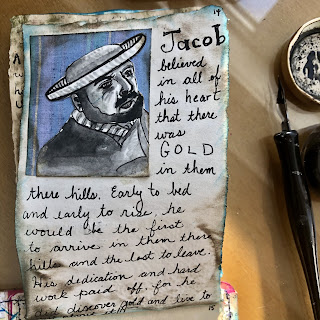 14
Jacob
believed
in all of
his heart
that there
was
GOLD
in them
there hills. Early to bed
and early to rise, he
would be the first
to arrive in them there
hills and the last to leave.
His dedication and hard
work paid off for he
did discover gold and live to
15